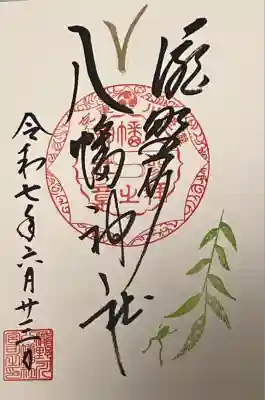 瀧野川
八幡神社
令和七年六月廿二日